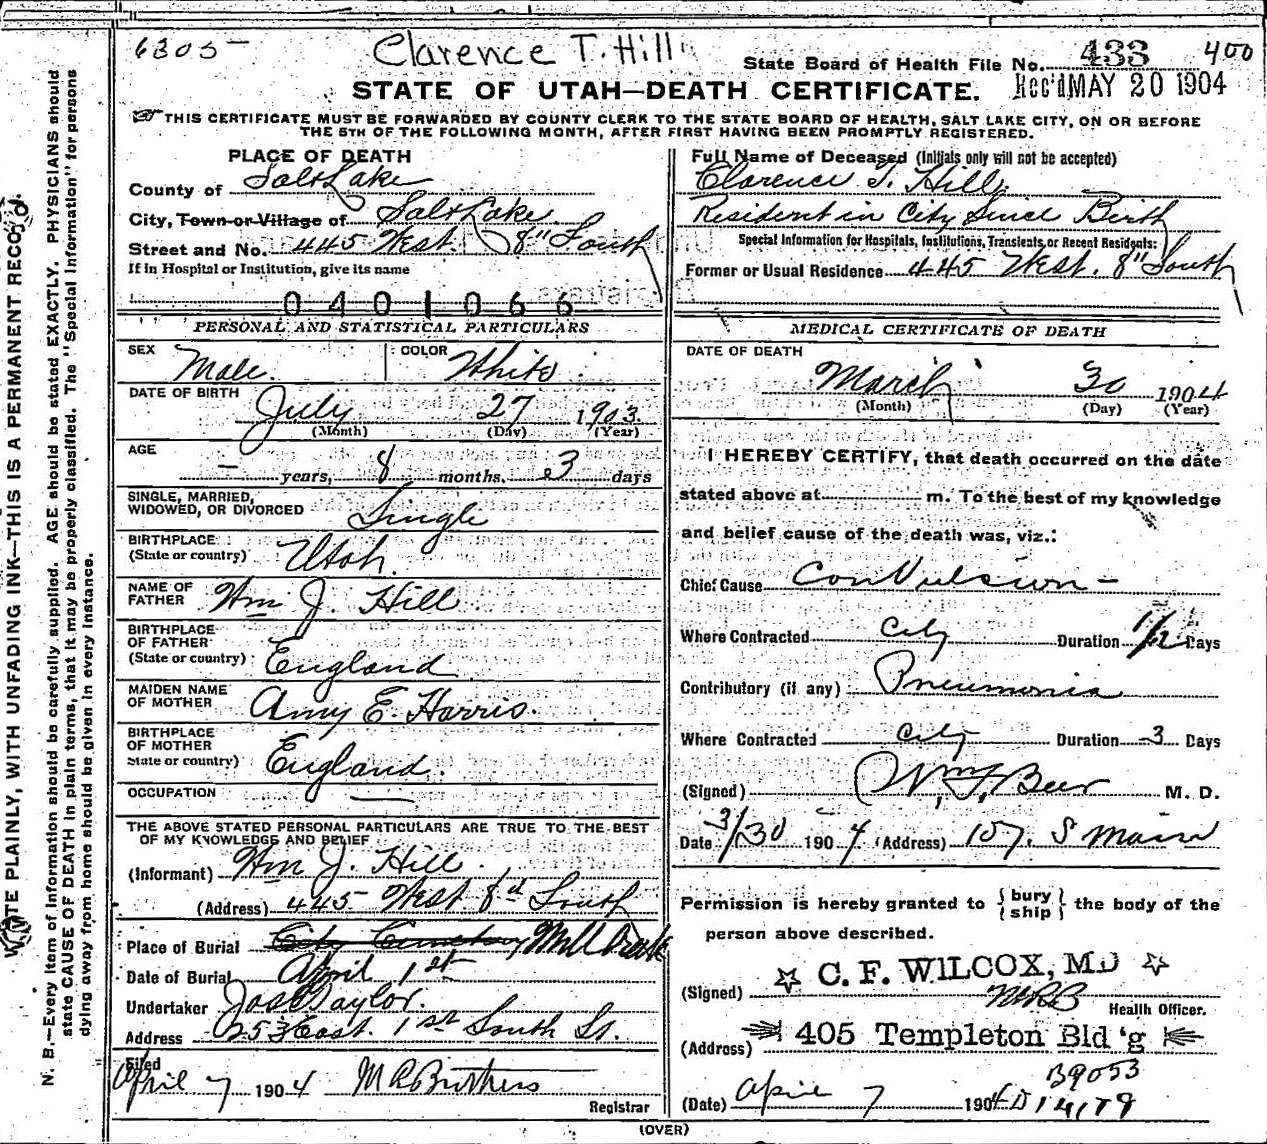 6305 Clarence T. Hill State Board of Health File No. 433 400
STATE OF UTAH—DEATH CERTIFICATE. Rec'd MAY 20 1904
THIS CERTIFICATE MUST BE FORWARDED BY COUNTY CLERK TO THE STATE BOARD OF HEALTH, SALT LAKE CITY, ON OR BEFORE
THE 5TH OF THE FOLLOWING MONTH, AFTER FIRST HAVING BEEN PROMPTLY REGISTERED.
PLACE OF DEATH
County of Salt Lake
City, Town or Village of Salt Lake
Street and No. 445 West 8" South
If in Hospital or Institution, give its name
0401066
PERSONAL AND STATISTICAL PARTICULARS
SEX Male. COLOR White.
DATE OF BIRTH July 27 1903.
(Month) (Day) (Year)
AGE — years, 8 months, 3 days
SINGLE, MARRIED,
WIDOWED, OR DIVORCED Single
BIRTHPLACE
(State or country) Utah.
NAME OF
FATHER Wm J. Hill
BIRTHPLACE
OF FATHER
(State or country) England
MAIDEN NAME
OF MOTHER Amy E. Harris.
BIRTHPLACE
OF MOTHER
State or country) England.
OCCUPATION —
THE ABOVE STATED PERSONAL PARTICULARS ARE TRUE TO THE BEST
OF MY KNOWLEDGE AND BELIEF
(Informant) Wm J. Hill.
(Address) 445 West 8th South
Place of Burial City Cemetery Mill Creek
Date of Burial April 1st
Undertaker Jos E Taylor.
Address 253 East. 1st South St.
Filed
April 7 1904
Registrar
Full Name of Deceased (Initials only will not be accepted)
Clarence T. Hill.
Resident in City Since Birth
Special Information for Hospitals, Institutions, Transients, or Recent Residents:
Former or Usual Residence 445 West. 8" South
MEDICAL CERTIFICATE OF DEATH
DATE OF DEATH
March 30 1904
(Month) (Day) (Year)
I HEREBY CERTIFY, that death occurred on the date
stated above at m. To the best of my knowledge
and belief cause of the death was, viz.:
Chief Cause Convulsion —
Where Contracted City Duration 1/2 Days
Contributory (if any) Pneumonia
Where Contracted City Duration 3 Days
(Signed) Wm F. Beer M. D.
Date 3/30 1904 (Address) 107. S Main
Permission is hereby granted to { bury / ship } the body of the
person above described.
(Signed) C. F. WILCOX, MD
MRB Health Officer.
(Address) 405 Templeton Bld'g
39053
(Date) April 7 1904 D 14179
(OVER)
WRITE PLAINLY, WITH UNFADING INK—THIS IS A PERMANENT RECORD.
N. B.—Every item of Information should be carefully supplied. AGE should be stated EXACTLY. PHYSICIANS should
state CAUSE OF DEATH in plain terms, that it may be properly classified. The "Special Information" for persons
dying away from home should be given in every instance.